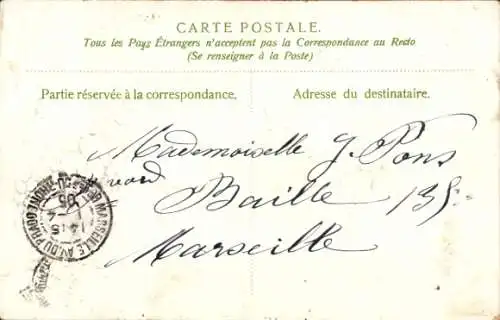 CARTE POSTALE.
Tous les Pays Étrangers n'acceptent pas la Correspondance au Recto
(Se renseigner à la Poste)
Partie réservée à la correspondance.
Adresse du destinataire.
Mademoiselle J. Pons
Baille 135
Marseille
MARSEILLE AV. DU PRADO